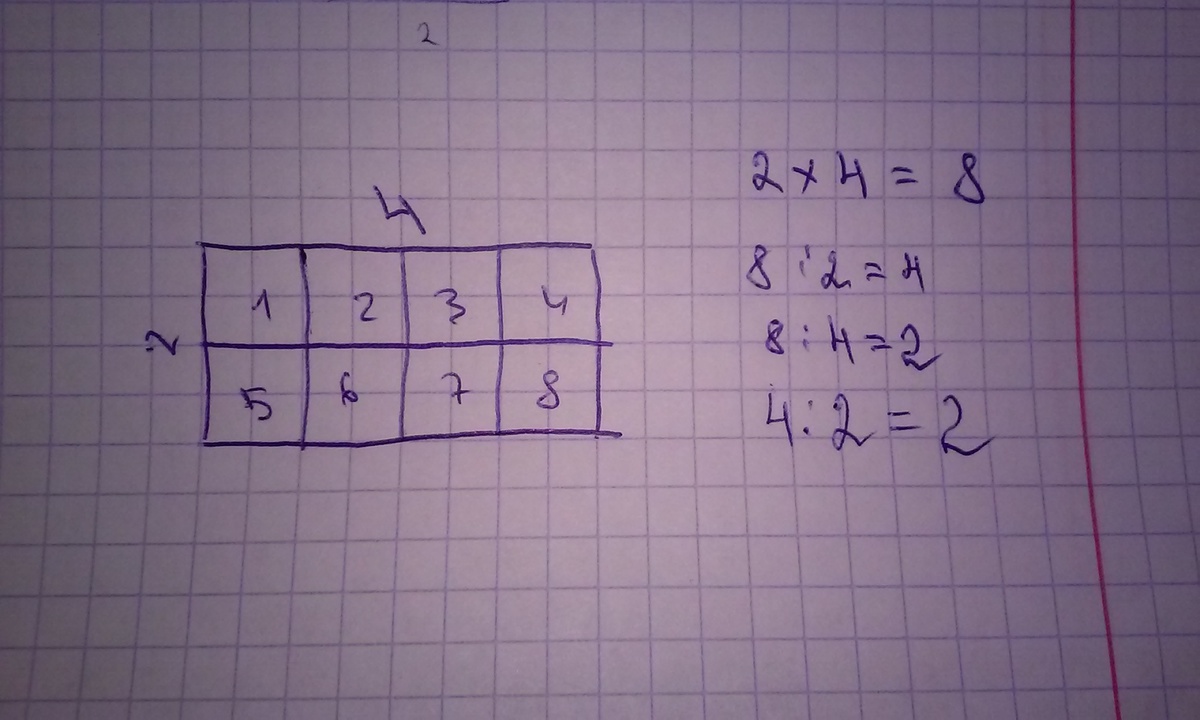 2
4
2
1 2 3 4
5 6 7 8
2 × 4 = 8
8 : 2 = 4
8 : 4 = 2
4 : 2 = 2